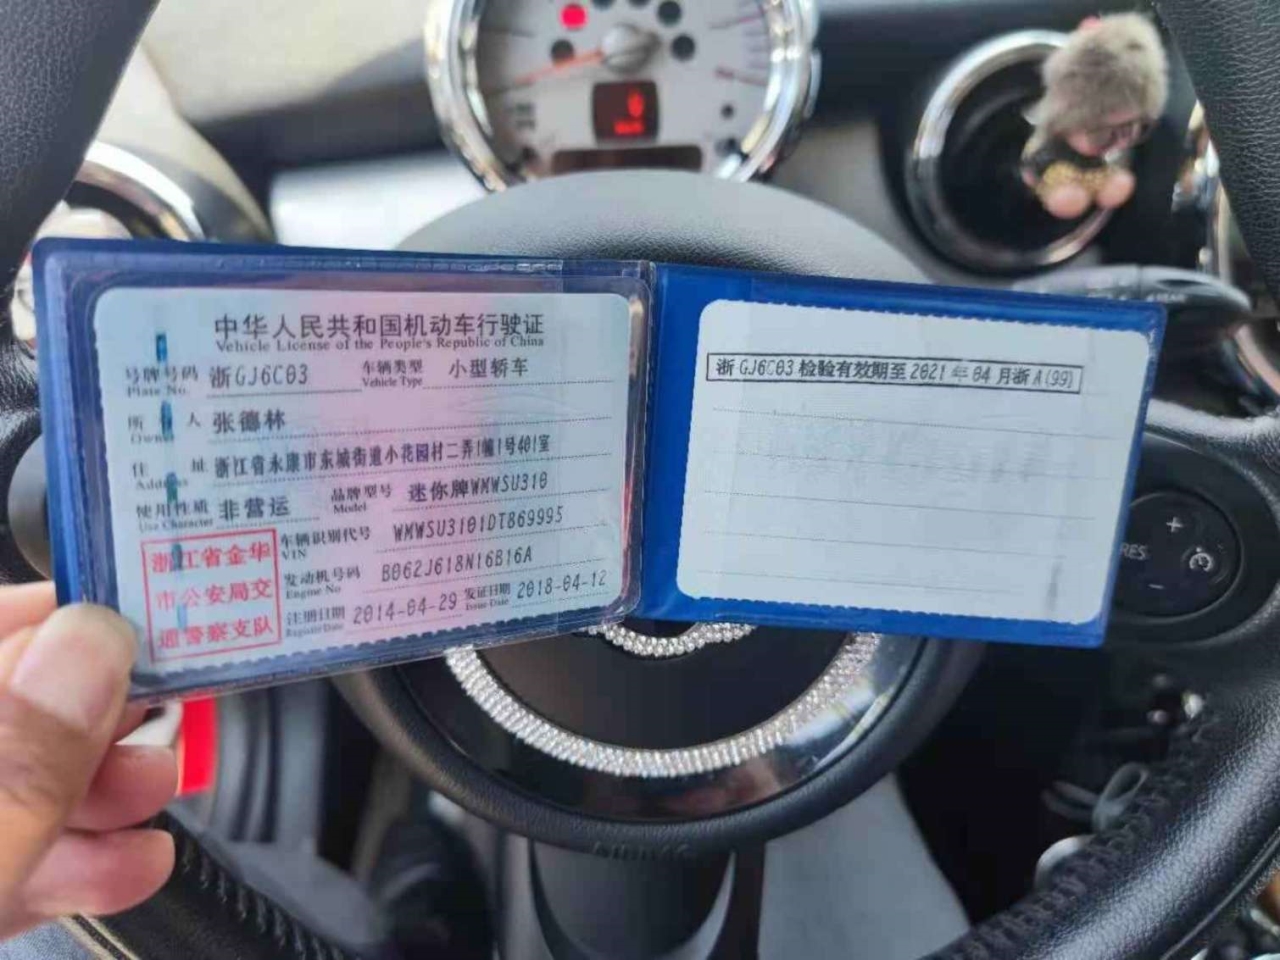 中华人民共和国机动车行驶证
Vehicle License of the People's Republic of China
号牌号码 浙GJ6C03 车辆类型 小型轿车
Plate No. Vehicle Type
所有人 张德林
Owner
住址 浙江省永康市东城街道小花园村二弄1幢1号401室
Address
使用性质 非营运 品牌型号 迷你牌WMWSU310
Use Character Model
浙江省金华
市公安局交
通警察支队
车辆识别代号 WMWSU3101DT869995
VIN
发动机号码 B062J618N16B16A
Engine No
注册日期 2014-04-29 发证日期 2018-04-12
Register Date Issue Date
浙GJ6C03 检验有效期至 2021 年 04 月浙A(99)
RES